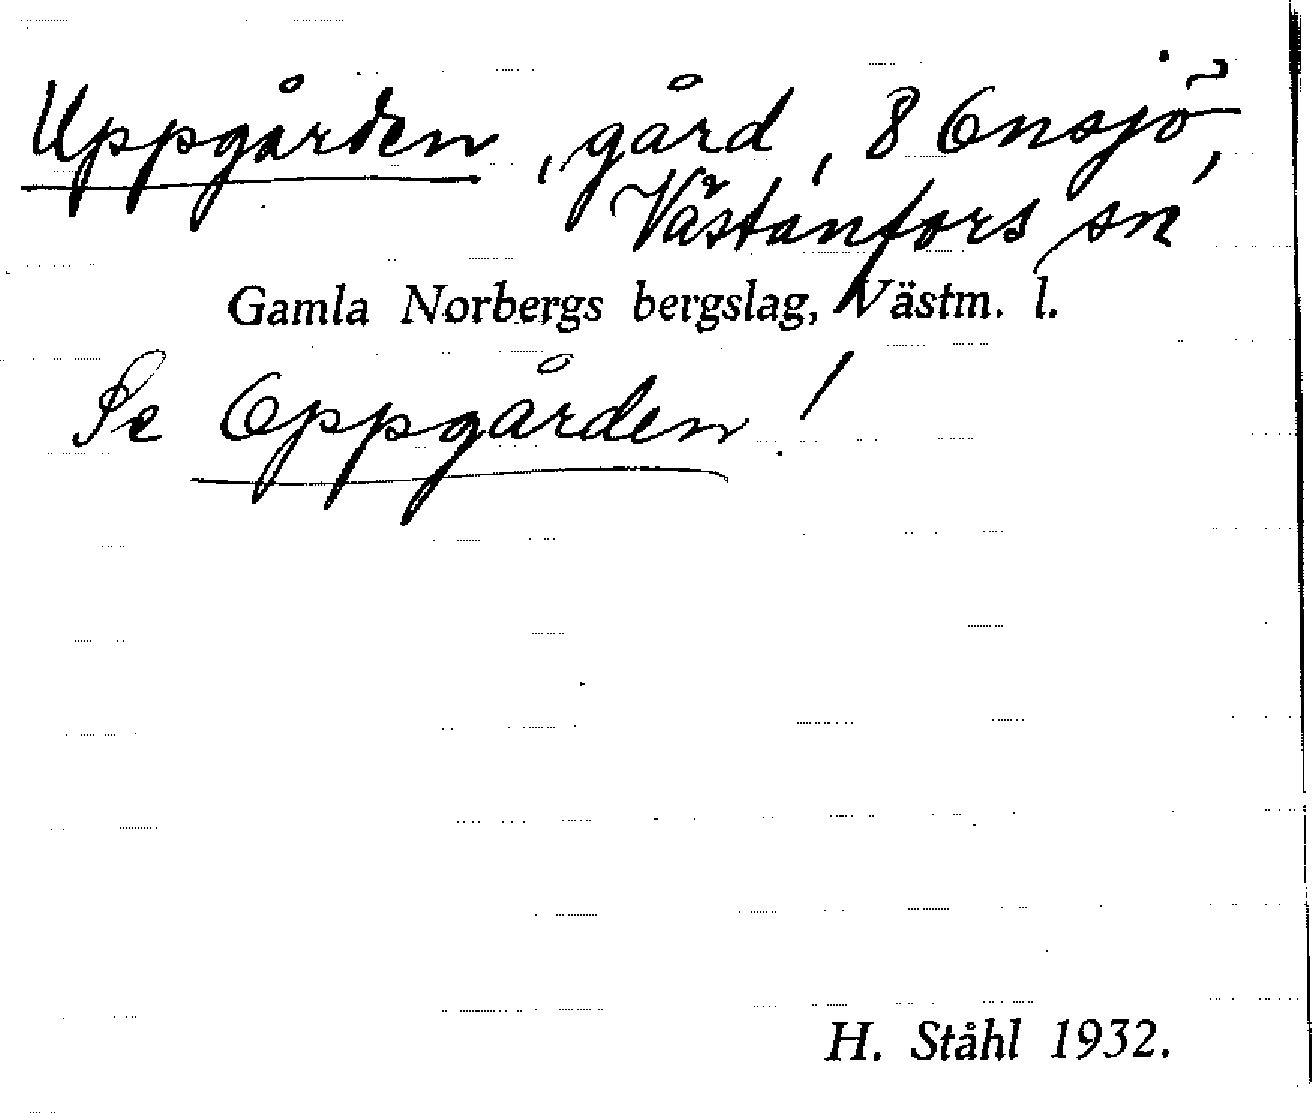 Uppgården, gård, 8 Onsjö,
Västanfors sn
Gamla Norbergs bergslag, Västm. l.
Se Oppgården!
H. Ståhl 1932.